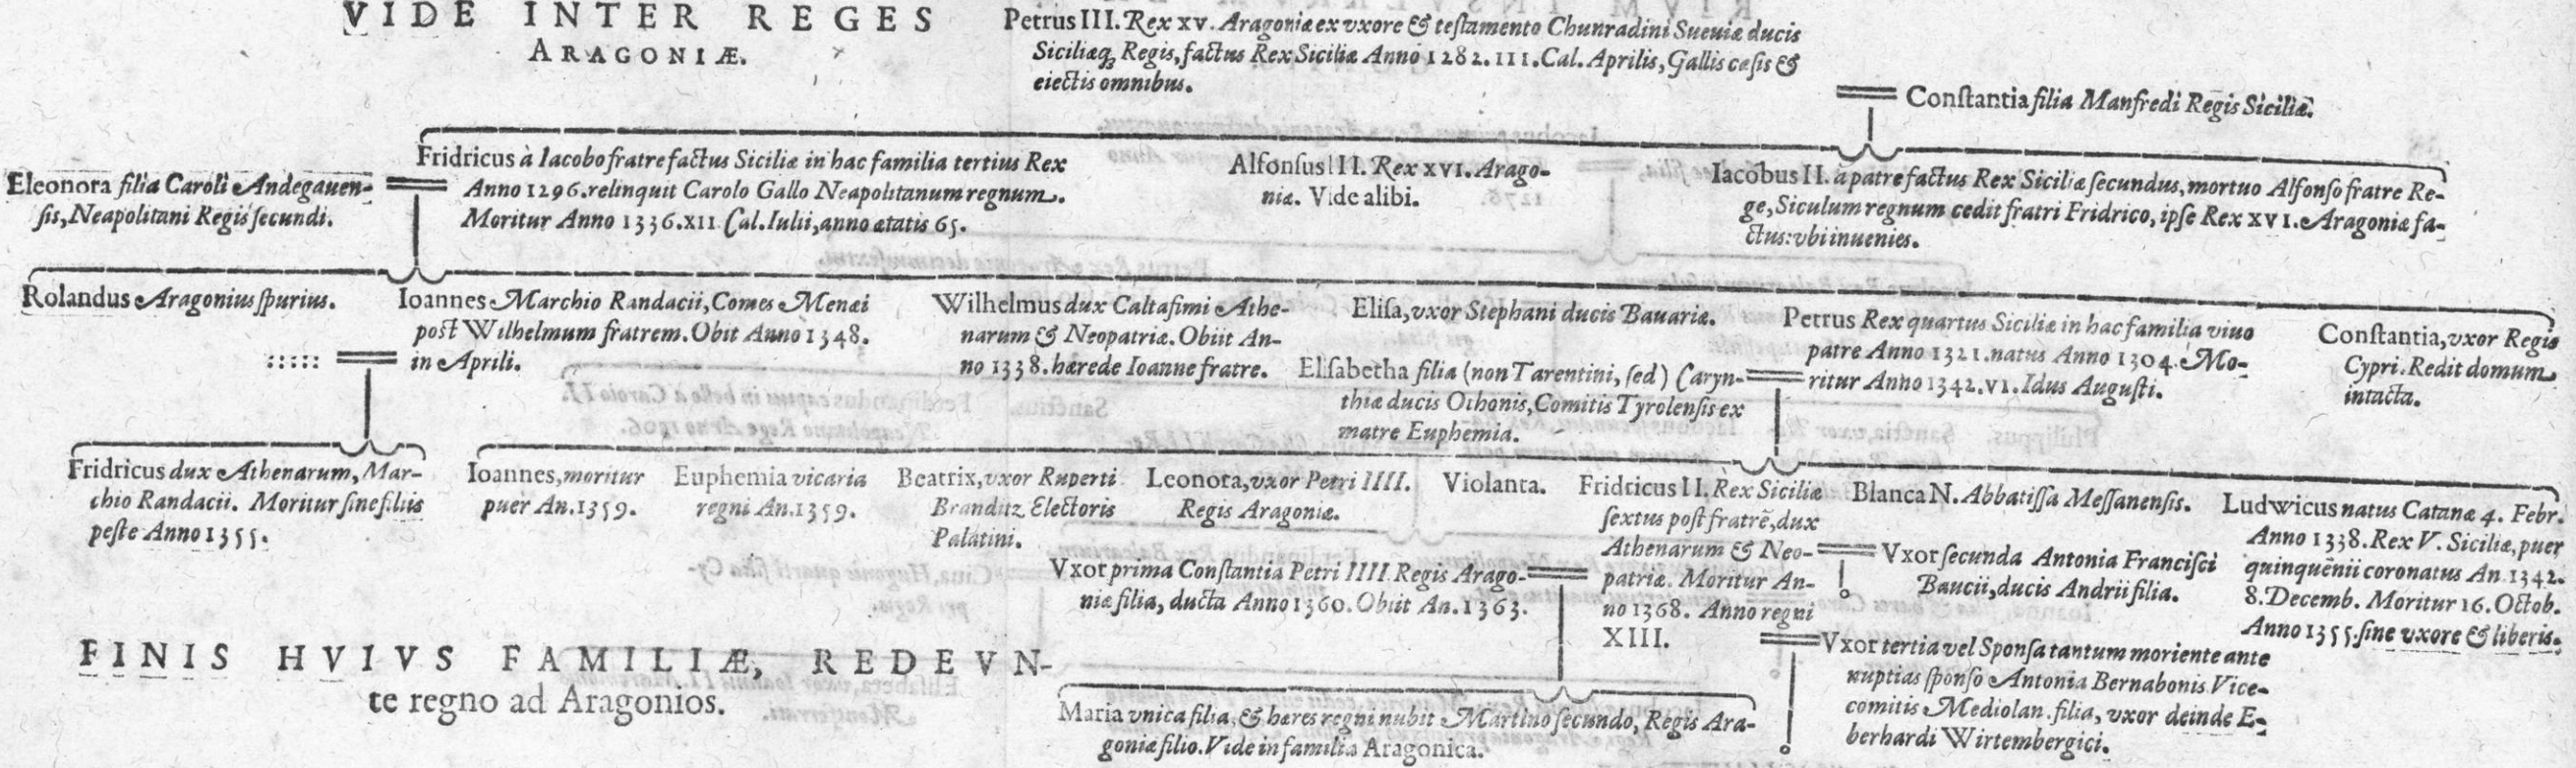 VIDE INTER REGES
ARAGONIÆ.
Petrus III. Rex xv. Aragoniæ ex vxore & teſtamento Chunradini Sueuiæ ducis
Siciliæq; Regis, factus Rex Siciliæ Anno 1282. III. Cal. Aprilis, Gallis cæſis &
eiectis omnibus.
Conſtantia filia Manfredi Regis Siciliæ.
Eleonora filia Caroli Andegauen-
ſis, Neapolitani Regis ſecundi.
Fridricus à Iacobo fratre factus Siciliæ in hac familia tertius Rex
Anno 1296. relinquit Carolo Gallo Neapolitanum regnum.
Moritur Anno 1336. XII Cal. Iulii, anno ætatis 65.
Alfonſus III. Rex XVI. Arago-
niæ. Vide alibi.
Iacobus II. à patre factus Rex Siciliæ ſecundus, mortuo Alfonſo fratre Re-
ge, Siculum regnum cedit fratri Fridrico, ipſe Rex XVI. Aragoniæ fa-
ctus: vbi inuenies.
Rolandus Aragonius ſpurius.
Ioannes Marchio Randacii, Comes Menæi
post Wilhelmum fratrem. Obit Anno 1348.
::::: in Aprili.
Wilhelmus dux Caltafimi Athe-
narum & Neopatriæ. Obiit An-
no 1338. hærede Ioanne fratre.
Eliſa, vxor Stephani ducis Bauariæ.
Eliſabetha filia (non Tarentini, ſed) Caryn-
thiæ ducis Othonis, Comitis Tyrolenſis ex
matre Euphemia.
Petrus Rex quartus Siciliæ in hac familia viuo
patre Anno 1321. natus Anno 1304. Mo-
ritur Anno 1342. VI. Idus Auguſti.
Conſtantia, vxor Regis
Cypri. Redit domum
intacta.
Fridricus dux Athenarum, Mar-
chio Randacii. Moritur ſine filiis
peſte Anno 1355.
Ioannes, moritur
puer An. 1359.
Euphemia vicaria
regni An. 1359.
Beatrix, vxor Ruperti
Branditz Electoris
Palatini.
Leonora, vxor Petri IIII.
Regis Aragoniæ.
Violanta.
Fridricus II. Rex Siciliæ
ſextus poſt fratrē, dux
Athenarum & Neo-
patriæ. Moritur An-
no 1368. Anno regni
XIII.
Blanca N. Abbatiſſa Meſſanenſis.
Ludwicus natus Catanæ 4. Febr.
Anno 1338. Rex V. Siciliæ, puer
quinquēnii coronatus An. 1342.
8. Decemb. Moritur 16. Octob.
Anno 1355. ſine vxore & liberis.
Vxor prima Conſtantia Petri IIII. Regis Arago-
niæ filia, ducta Anno 1360. Obiit An. 1363.
Vxor ſecunda Antonia Franciſci
Baucii, ducis Andrii filia.
Vxor tertia vel Sponſa tantum moriente ante
nuptias ſponſo Antonia Bernabonis Vice-
comitis Mediolan. filia, vxor deinde E-
berhardi Wirtembergici.
FINIS HVIVS FAMILIÆ, REDEVN-
te regno ad Aragonios.
Maria vnica filia, & hæres regni nubit Martino ſecundo, Regis Ara-
goniæ filio. Vide in familia Aragonica.